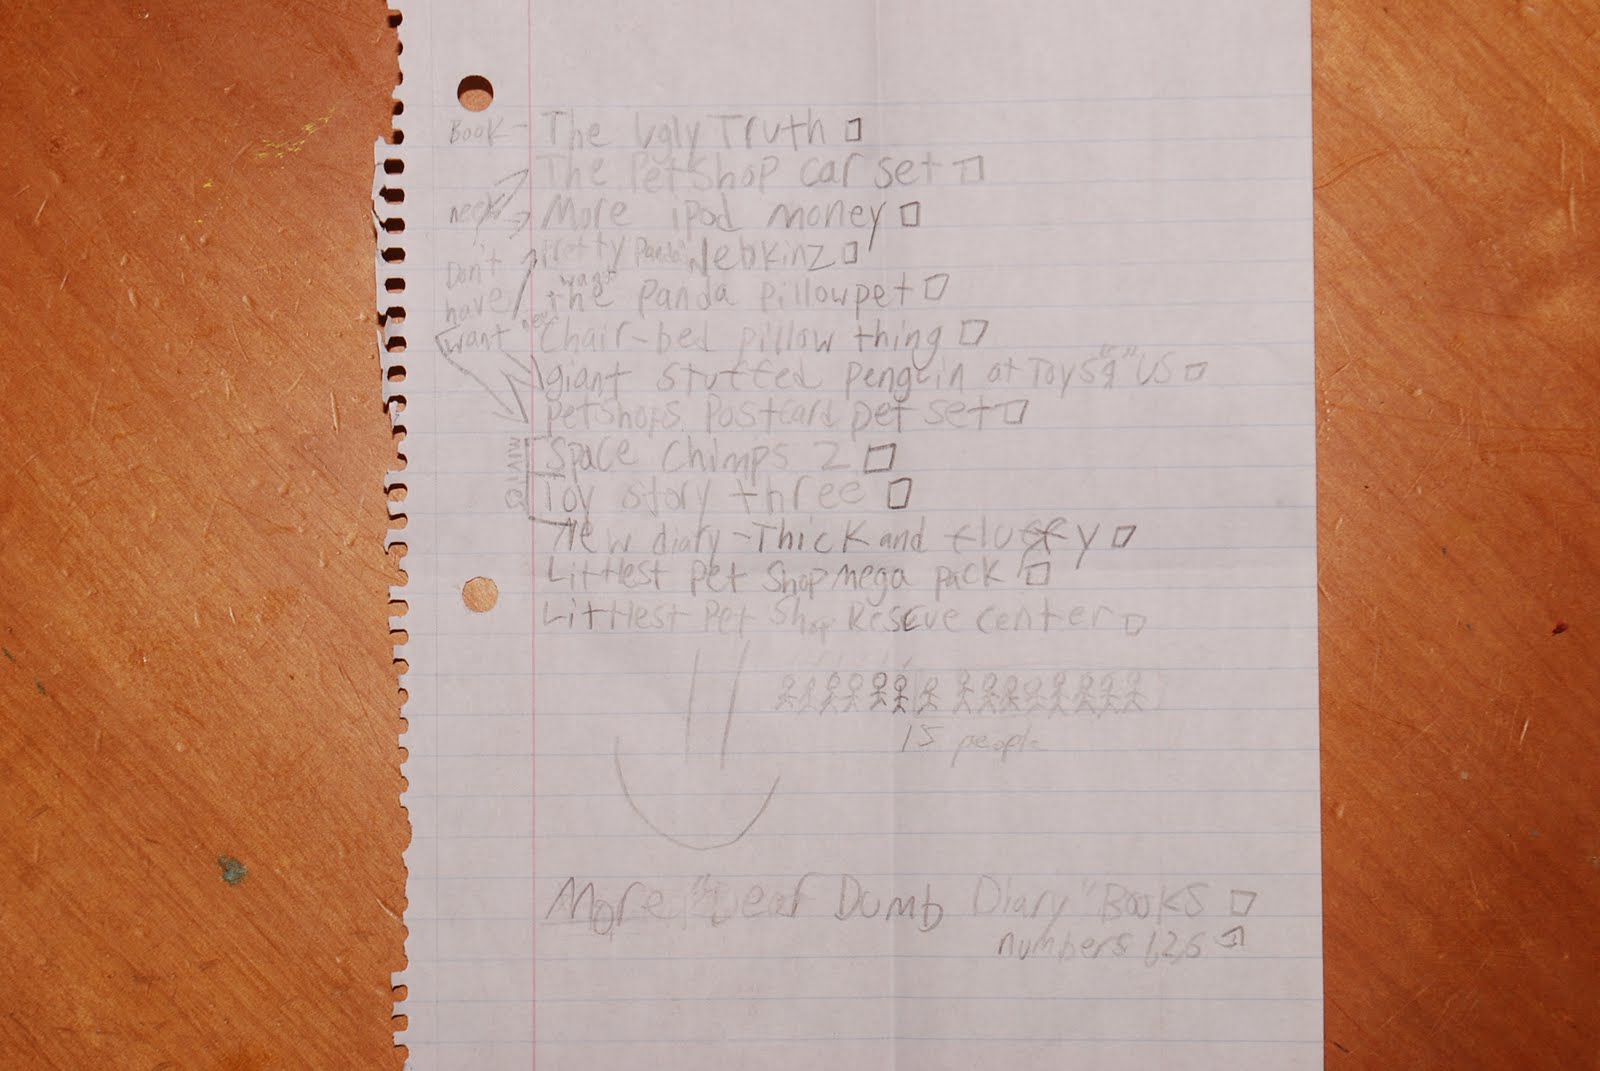 Book - The Ugly Truth
The PetShop car set
need More iPod money
Don't Pretty Panda Webkinz
have want the Panda pillowpet
want need Chair-bed pillow thing
giant stuffed penguin at Toys "R" US
Petshops Postcard pet set
Space Chimps 2
Toy story three
New diary - Thick and fluffy
Littlest Pet Shop mega pack
Littlest Pet Shop Rescue center
15 people
More "Dear Dumb Diary" Books
numbers 1,2,6